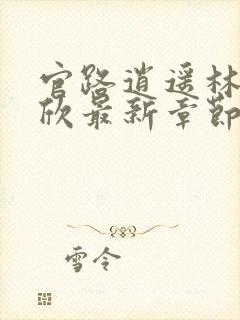 官路逍遥林
欣最新章节
雪令